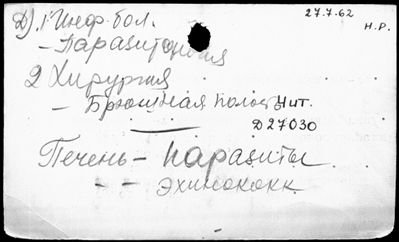 Д) 1 Инф. бол. 27.7.62
Н.Р.
– Паразитология
2 Хирургия
– Брюшная полость Нит.
Д27030
Печень – паразиты
– – эхинококк